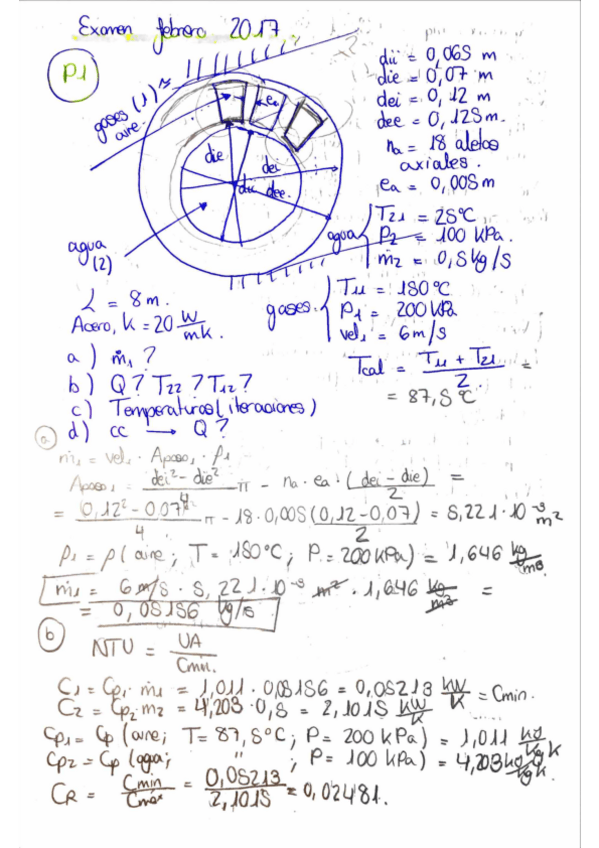 Examen febrero 2017
P1
gases (1)
aire.
ea
die
dei
dii
dee
agua
(2)
dii = 0,065 m
die = 0,07 m
dei = 0,12 m
dee = 0,125 m.
na = 18 aletas
axiales.
ea = 0,005 m
agua { T21 = 25ºC
P2 = 100 kPa.
ṁ2 = 0,5 kg/s
L = 8 m.
Acero, k = 20 W/mk.
gases { T11 = 180ºC
P1 = 200 kPa
vel1 = 6 m/s
a) ṁ1 ?
b) Q? T22? T12?
c) Temperaturas (iteraciones)
d) cc → Q?
Tcal = (T11 + T21)/2 =
= 87,5ºC
a
ṁ1 = vel1 · Apaso1 · ρ1
Apaso1 = (dei² - die²)/4 π - na · ea · (dei - die)/2 =
= (0,12² - 0,07²)/4 π - 18 · 0,005 (0,12 - 0,07)/2 = 5,221 · 10⁻³ m²
ρ1 = ρ (aire; T = 180ºC; P = 200 kPa) = 1,646 kg/m3
ṁ1 = 6 m/s · 5,221 · 10⁻³ m² · 1,646 kg/m3 =
= 0,05156 kg/s
b
NTU = UA/Cmin.
C1 = Cp1 · ṁ1 = 1,011 · 0,05156 = 0,05213 kW/K = Cmin.
C2 = Cp2 · m2 = 4,203 · 0,5 = 2,1015 kW/K
Cp1 = Cp (aire; T = 87,5ºC; P = 200 kPa) = 1,011 kJ/kg K
Cp2 = Cp (agua; " ; P = 100 kPa) = 4,203 kJ/kg K.
CR = Cmin/Cmáx = 0,05213/2,1015 = 0,02481.